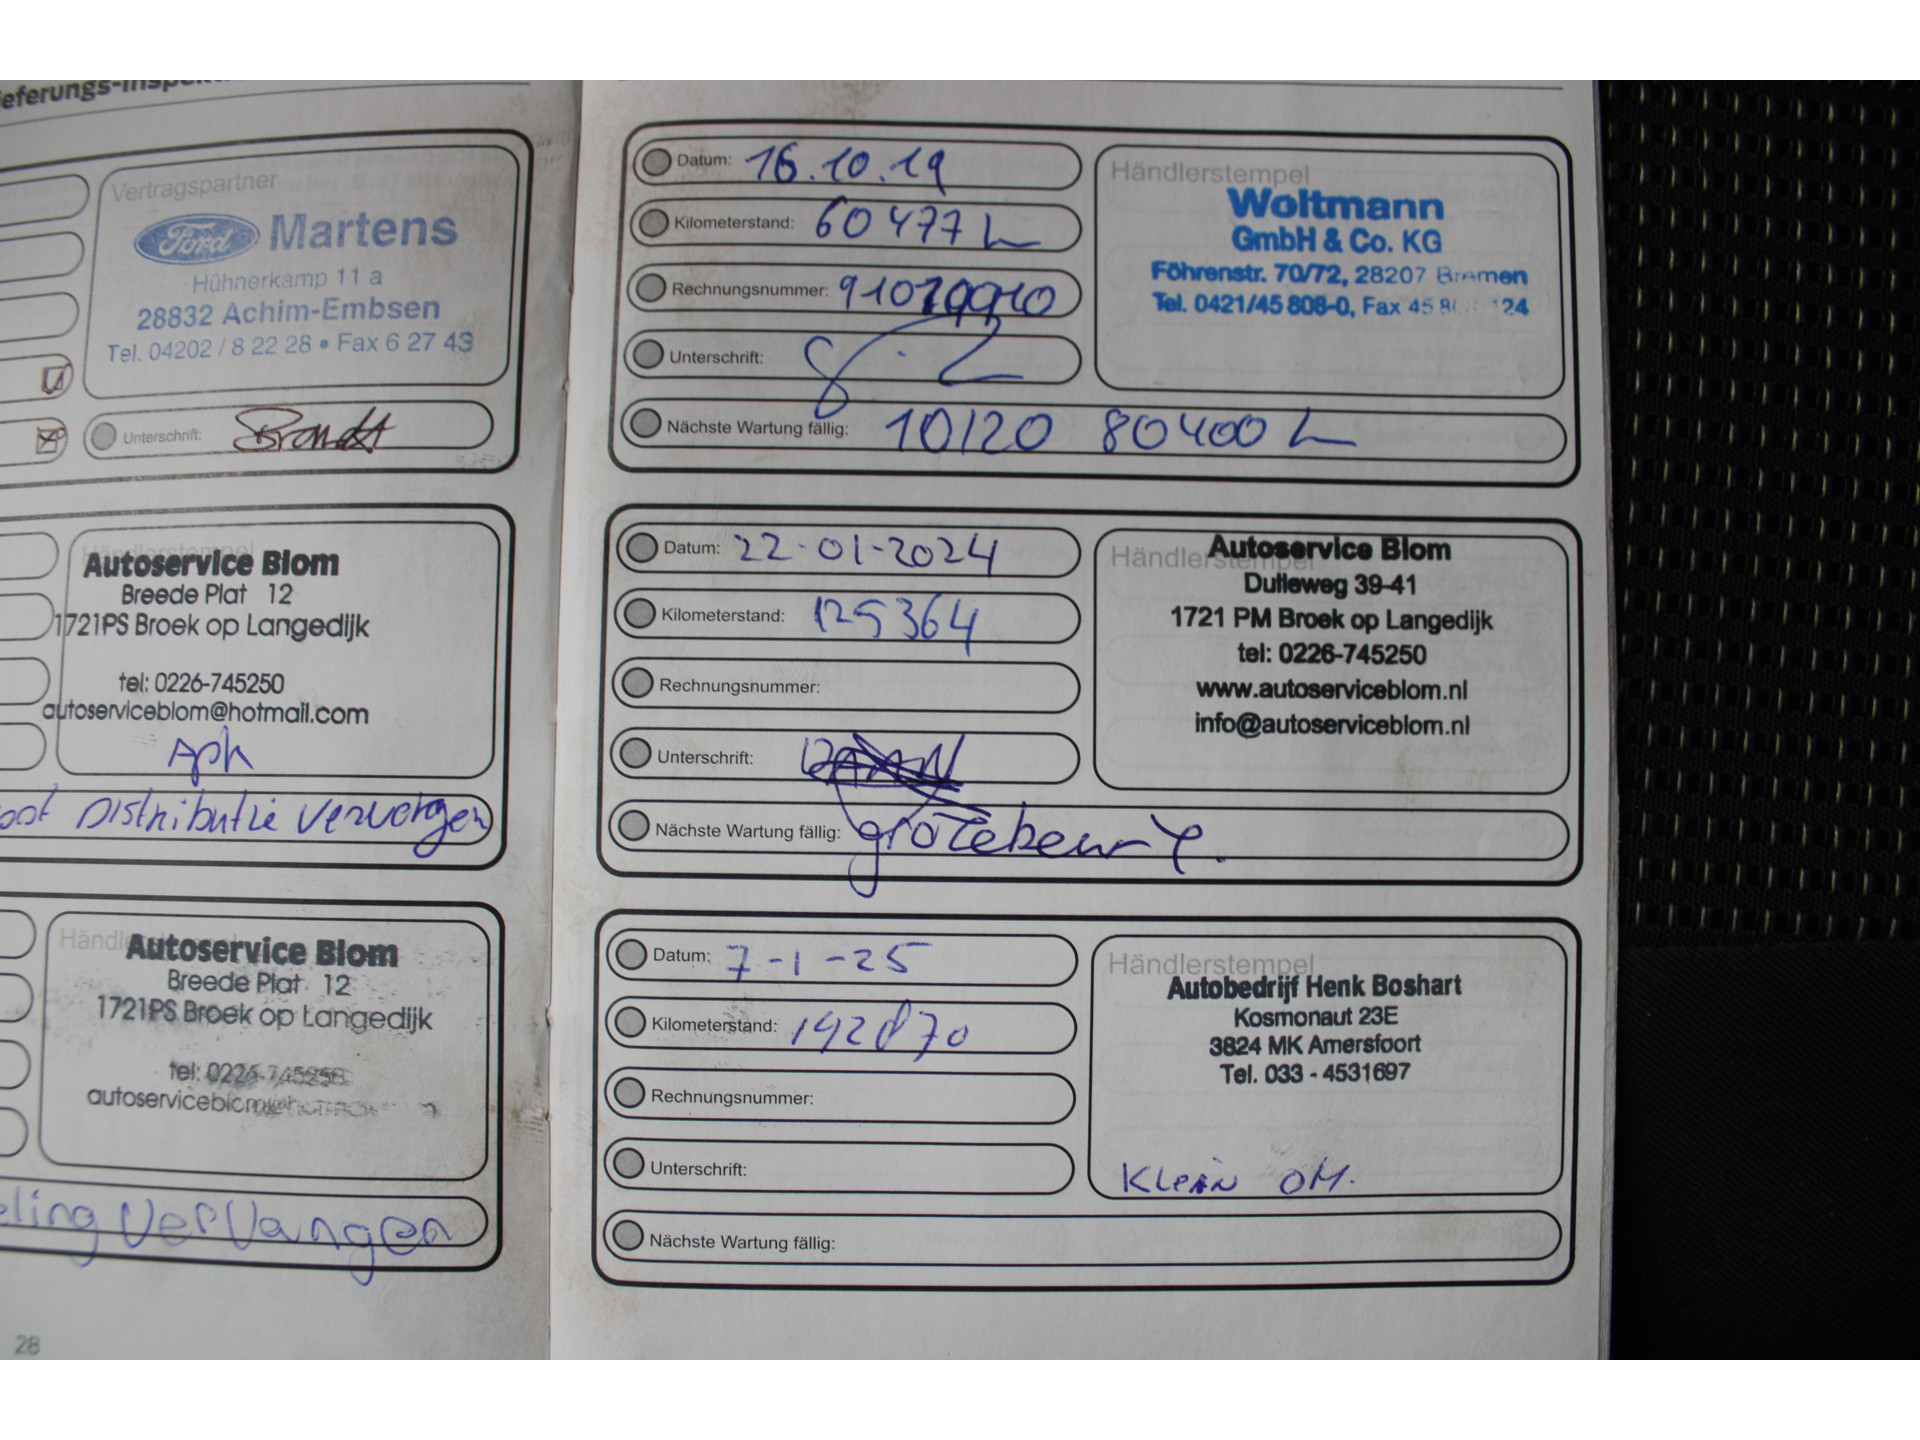 Vertragspartner
Ford Martens
Hühnerkamp 11 a
28832 Achim-Embsen
Tel. 04202 / 8 22 28 • Fax 6 27 43
Unterschrift: Brandt
Händlerstempel
Autoservice Blom
Breede Plat 12
1721PS Broek op Langedijk
tel: 0226-745250
autoserviceblom@hotmail.com
Apk
Distributie vervangen
Autoservice Blom
Breede Plat 12
1721PS Broek op Langedijk
tel: 0226-745250
eling Vervangen
28
Datum: 16.10.19
Kilometerstand: 60477
Rechnungsnummer:
Unterschrift:
Nächste Wartung fällig: 10/20 80400
Händlerstempel
Woltmann
GmbH & Co. KG
Föhrenstr. 70/72, 28207 Bremen
Tel. 0421/45 808-0, Fax
Datum: 22-01-2024
Kilometerstand: 125364
Rechnungsnummer:
Unterschrift:
Nächste Wartung fällig: grotebeurt.
Händlerstempel
Autoservice Blom
Dulleweg 39-41
1721 PM Broek op Langedijk
tel: 0226-745250
www.autoserviceblom.nl
info@autoserviceblom.nl
Datum: 7-1-25
Kilometerstand: 192870
Rechnungsnummer:
Unterschrift:
Nächste Wartung fällig:
Händlerstempel
Autobedrijf Henk Boshart
Kosmonaut 23E
3824 MK Amersfoort
Tel. 033 - 4531697
Klein OH.